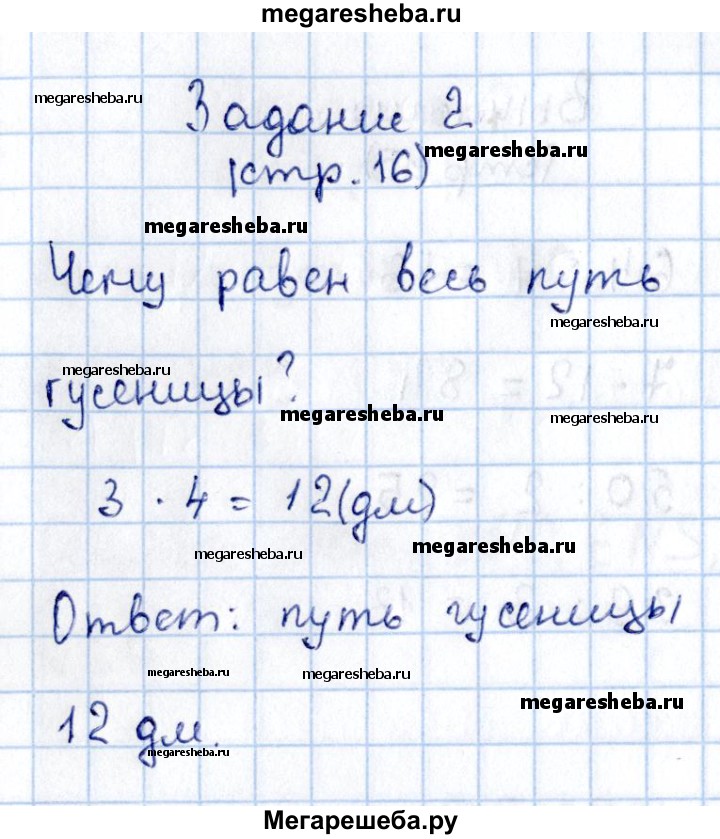 megaresheba.ru
megaresheba.ru
Задание 2
megaresheba.ru
(стр. 16)
megaresheba.ru
Чему равен весь путь
megaresheba.ru
megaresheba.ru
гусеницы?
megaresheba.ru
megaresheba.ru
3 · 4 = 12 (дм)
megaresheba.ru
megaresheba.ru
Ответ: путь гусеницы
megaresheba.ru
megaresheba.ru
megaresheba.ru
12 дм.
megaresheba.ru
Мегарешеба.ру